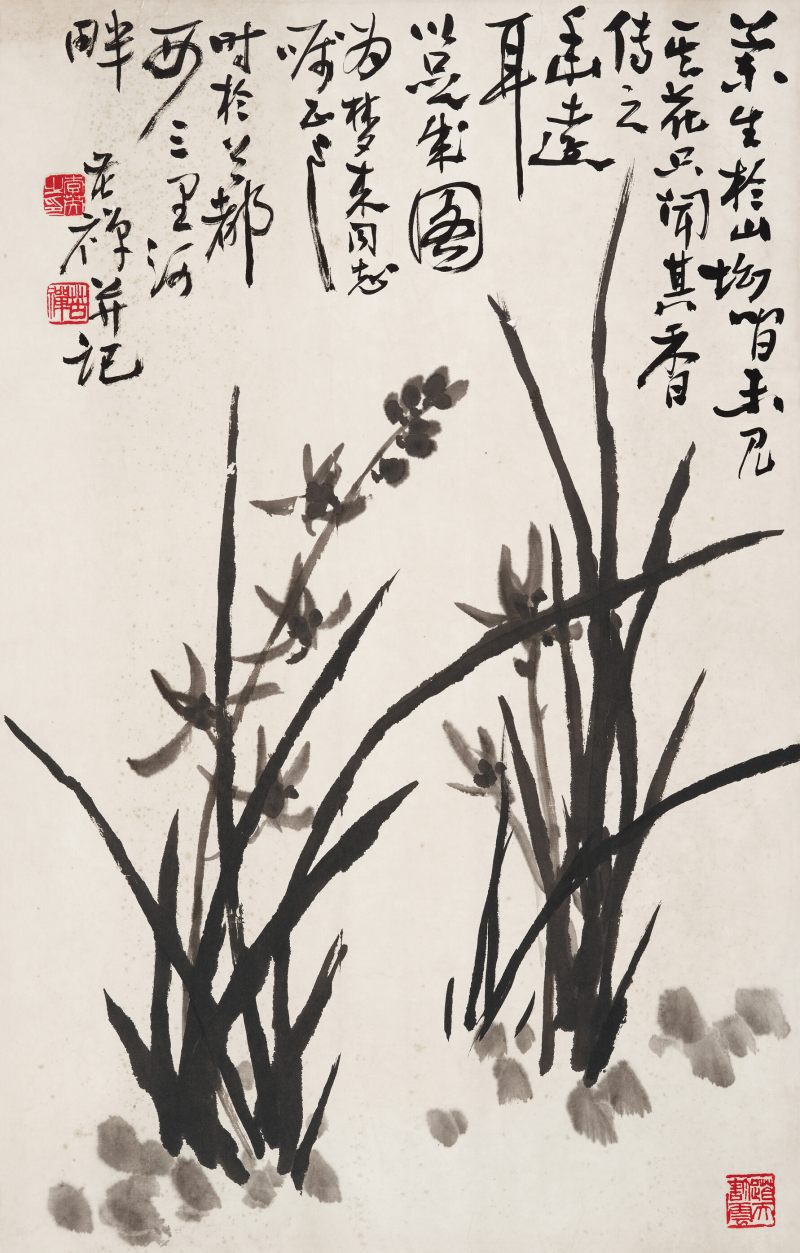 兰生於山坳皆未见
其花只闻其香
传之
幽远
耳
以成图
为梦来同志
嘱正之
时於首都
西三里河
畔
苦禅并记
苦禅